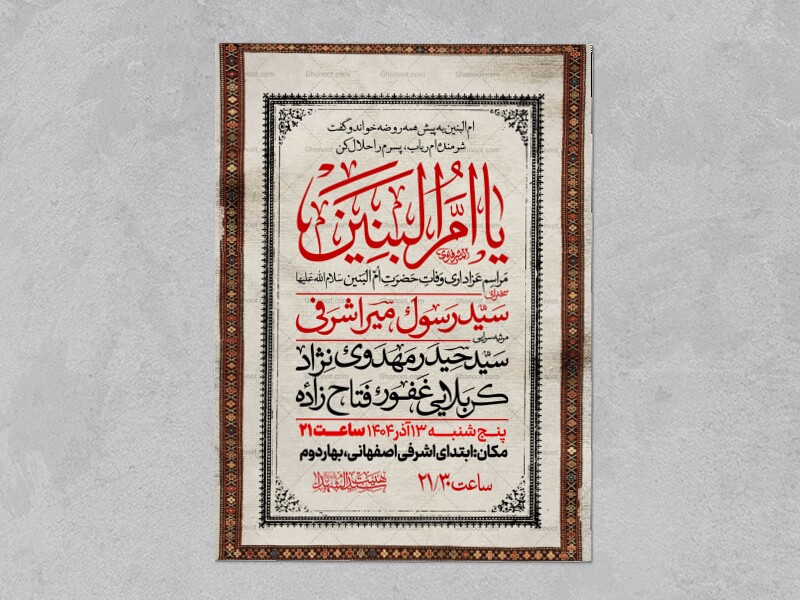 ام البنین به پیش همه روضه خواند و گفت
شرمنده‌ام رباب، پسرم را حلال کن
یا اُمَّ البَنِین
مَراسِم عَزاداری وَفاتِ حَضرَتِ اُمّ البَنین سَلام الله عَلیها
سخنرانی
سَیِّد رَسول میراشرفی
مرثیه سرایی
سَیِّد حِیدَر مَهدَوی نِژاد
کَربَلایی غَفور فَتاح زاده
پنج شنبه ۱۳ آذر ۱۴۰۴ ساعت ۲۱
مکان: ابتدای اشرفی اصفهانی، بهار دوم
ساعت ۲۱/۳۰
Ghonoot.com